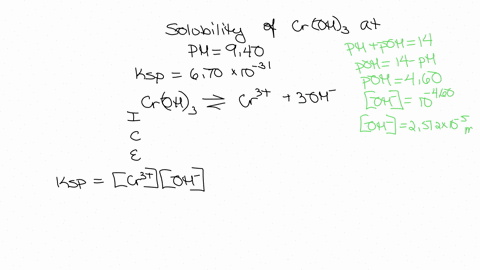 Solubility of Cr(OH)₃ at
PH = 9,40
Ksp = 6,70 × 10⁻³¹
Cr(OH)₃ ⇌ Cr³⁺ + 3OH⁻
I
C
E
Ksp = [Cr³⁺][OH⁻]
PH + POH = 14
POH = 14 - PH
POH = 4,60
[OH⁻] = 10⁻⁴·⁶⁰
[OH⁻] = 2,512×10⁻⁵ m